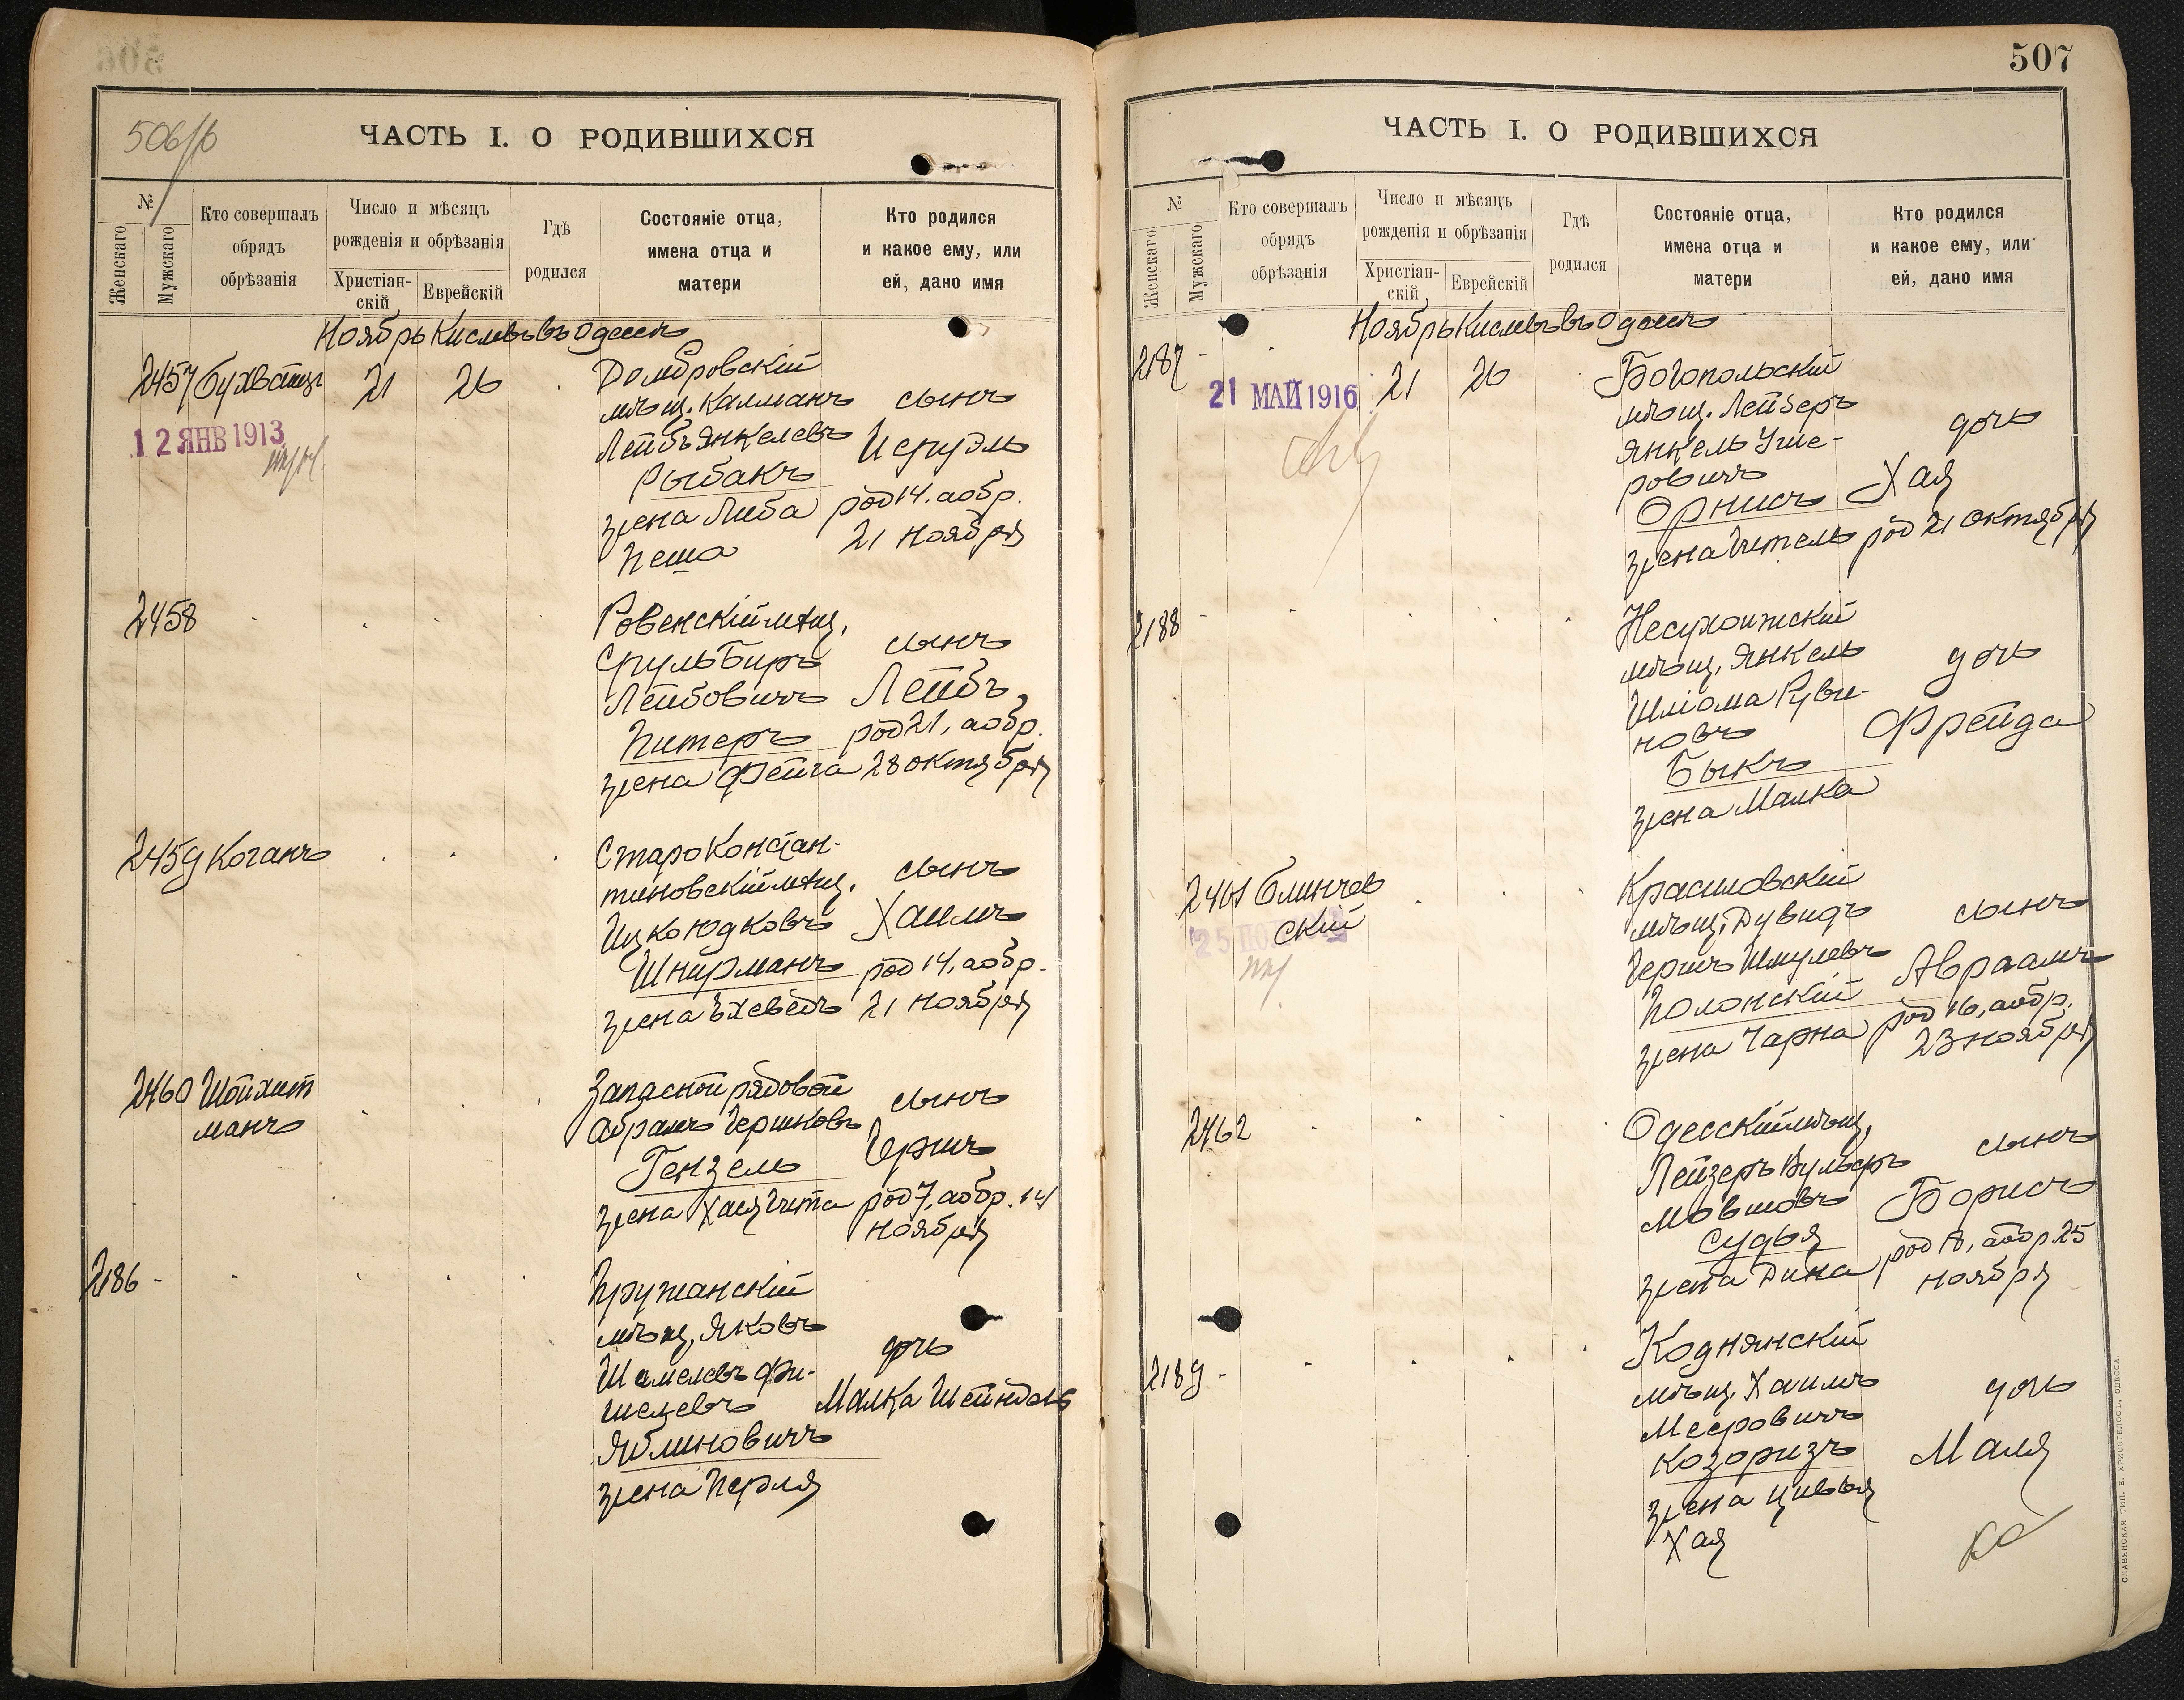 506/б
ЧАСТЬ I. О РОДИВШИХСЯ
№
Женскаго
Мужскаго
Кто совершалъ
обрядъ
обрѣзанія
Число и мѣсяцъ
рожденія и обрѣзанія
Христіан-
скій
Еврейскій
Гдѣ
родился
Состояніе отца,
имена отца и
матери
Кто родился
и какое ему, или
ей, дано имя
Ноябрь Кислевъ въ Одессѣ
2457 Бухбаtцъ 21 26
12 ЯНВ 1913
Домбровскій
мѣщ. Калманъ
Лейбъ Янкелевъ
Рыбакъ
жена Либа
Песша
сынъ
Исруэль
род 14. а обр.
21 ноября
2458
Ровенскій мѣщ.
Сруль Биръ
Лейбовичъ
Питеръ
жена Фейга
сынъ
Лейбъ
род 21, а обр.
28 октября
2459 Коганъ
Староконстан-
тиновскій мѣщ.
Ицко Юдковъ
Шнирманъ
жена Ѣхеведъ
сынъ
Хаимъ
род 14, а обр.
21 ноября
2460 Шойхет
манъ
Запасной рядовой
Абрамъ Гершковъ
Гензель
жена Хая Гита
сынъ
Гершъ
род 7, а обр. 14
ноября
2186 -
Пружанскій
мѣщ. Яковъ
Шамелевъ Фи-
шелевъ
Яблиновичъ
жена Перля
дочь
Малка Шейндель
507
ЧАСТЬ I. О РОДИВШИХСЯ
№
Женскаго
Мужскаго
Кто совершалъ
обрядъ
обрѣзанія
Число и мѣсяцъ
рожденія и обрѣзанія
Христіан-
скій
Еврейскій
Гдѣ
родился
Состояніе отца,
имена отца и
матери
Кто родился
и какое ему, или
ей, дано имя
Ноябрь Кислевъ въ Одессѣ
2187 - 21 26
21 МАЙ 1916
Богопольскій
мѣщ. Лейзеръ
Янкель Уше-
ровичъ
Орнисъ
жена Гитель
дочь
Хая
род 21 октября
2188 -
Несухоижскій
мѣщ. Янкель
Шліома Руви-
новъ
Быкъ
жена Малка
дочь
Фрейда
2461 Блинчев
скій
Красиловскій
мѣщ. Дувидъ
Гершъ Шмулевъ
Полонскій
жена Чарна
сынъ
Авраамъ
род 16, а обр.
23 ноября
2462
Одесскій мѣщ.
Лейзеръ Вульфъ
Мовшовъ
Судья
жена Дина
сынъ
Борисъ
род 18, а обр. 25
ноября
2189 -
Коднянскій
мѣщ. Хаимъ
Мееровичъ
Козоризъ
жена Цивья
Хая
дочь
Маля
СЛАВЯНСКАЯ ТИП. Е. ХРИСОГЕЛОСЪ, ОДЕССА.